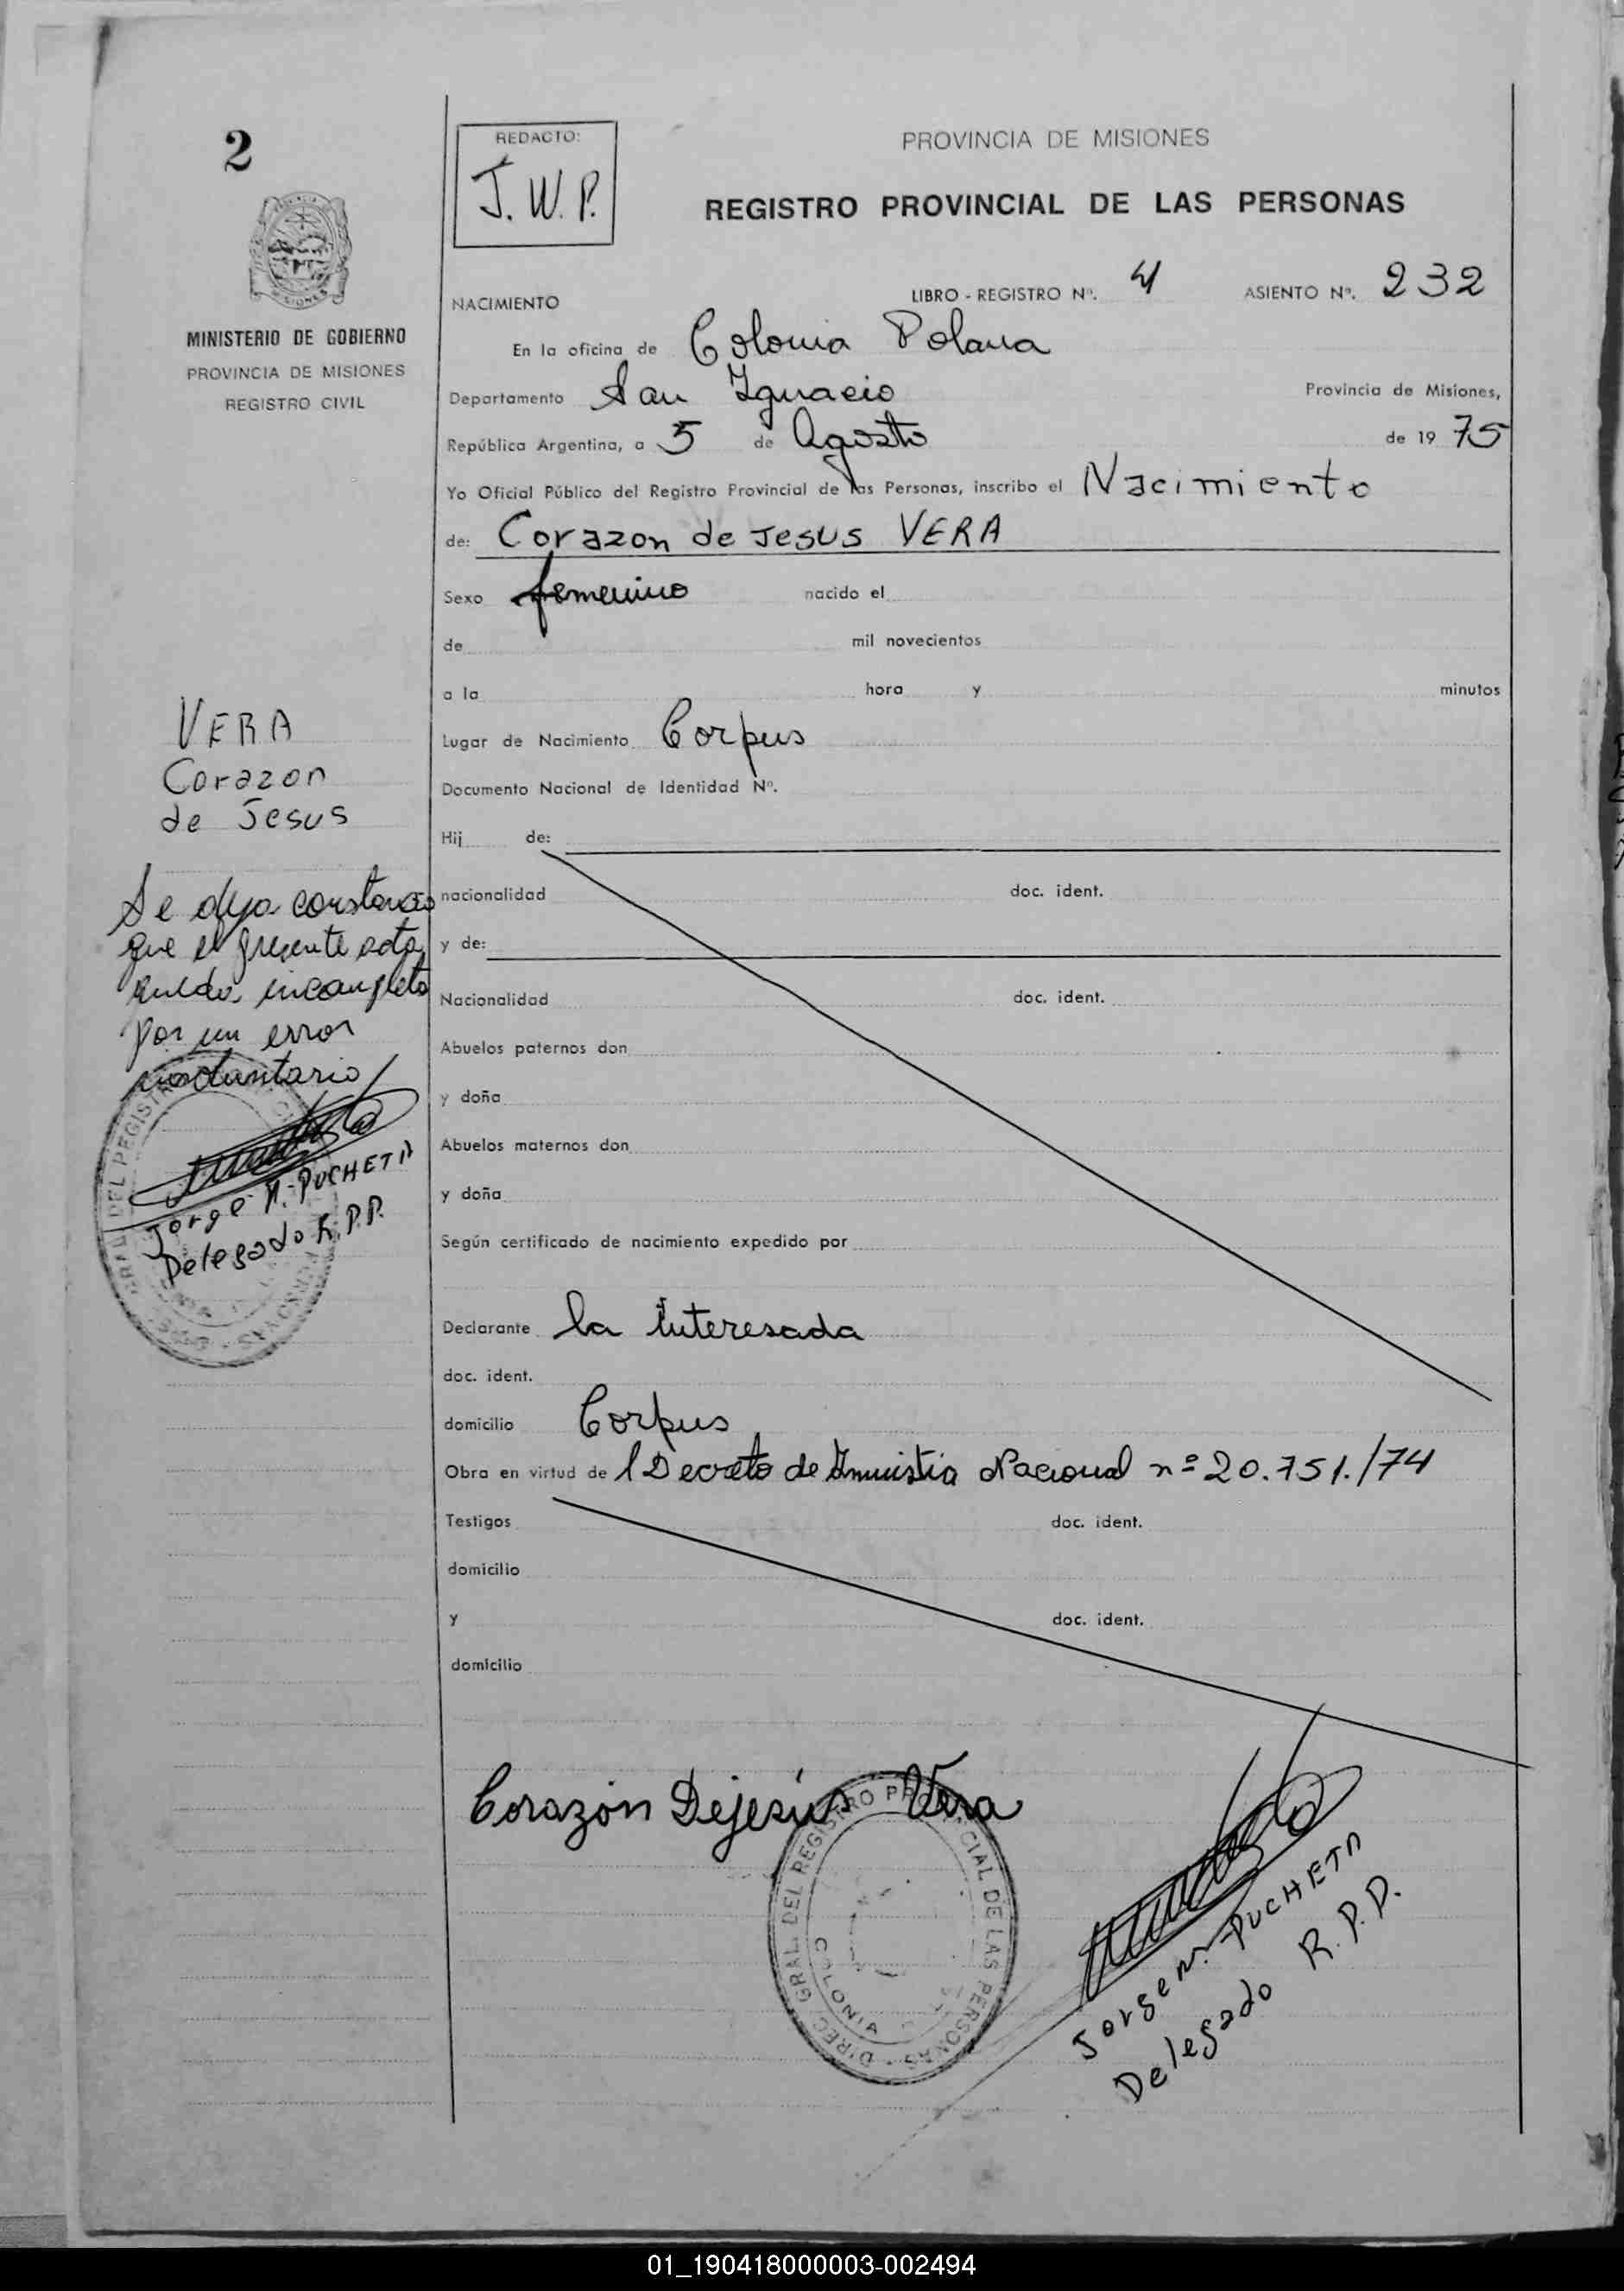 2
MISIONES
MINISTERIO DE GOBIERNO
PROVINCIA DE MISIONES
REGISTRO CIVIL
REDACTO:
J. W. P.
PROVINCIA DE MISIONES
REGISTRO PROVINCIAL DE LAS PERSONAS
NACIMIENTO LIBRO - REGISTRO Nº. 4 ASIENTO Nº. 232
En la oficina de Colonia Polana
Departamento San Ignacio Provincia de Misiones,
República Argentina, a 5 de Agosto de 19 75
Yo Oficial Público del Registro Provincial de las Personas, inscribo el Nacimiento
de: Corazon de Jesus VERA
Sexo femenino nacido el
de mil novecientos
a la hora y minutos
Lugar de Nacimiento Corpus
Documento Nacional de Identidad Nº.
Hij de:
nacionalidad doc. ident.
y de:
Nacionalidad doc. ident.
Abuelos paternos don
y doña
Abuelos maternos don
y doña
Según certificado de nacimiento expedido por
Declarante la interesada
doc. ident.
domicilio Corpus
Obra en virtud de l Decreto de Amnistia Nacional nº 20.751./74
Testigos doc. ident.
domicilio
y doc. ident.
domicilio
VERA
Corazon
de Jesus
Se deja constancia
que el presente acta
queda incompleta
por un error
involuntario
Jorge M. PUCHETA
Delegado R.P.P.
Corazón Dejesús Vera
DIREC. GRAL. DEL REGISTRO PROVINCIAL DE LAS PERSONAS
COLONIA
Jorge M. PUCHETA
Delegado R.P.P.
01_190418000003-002494